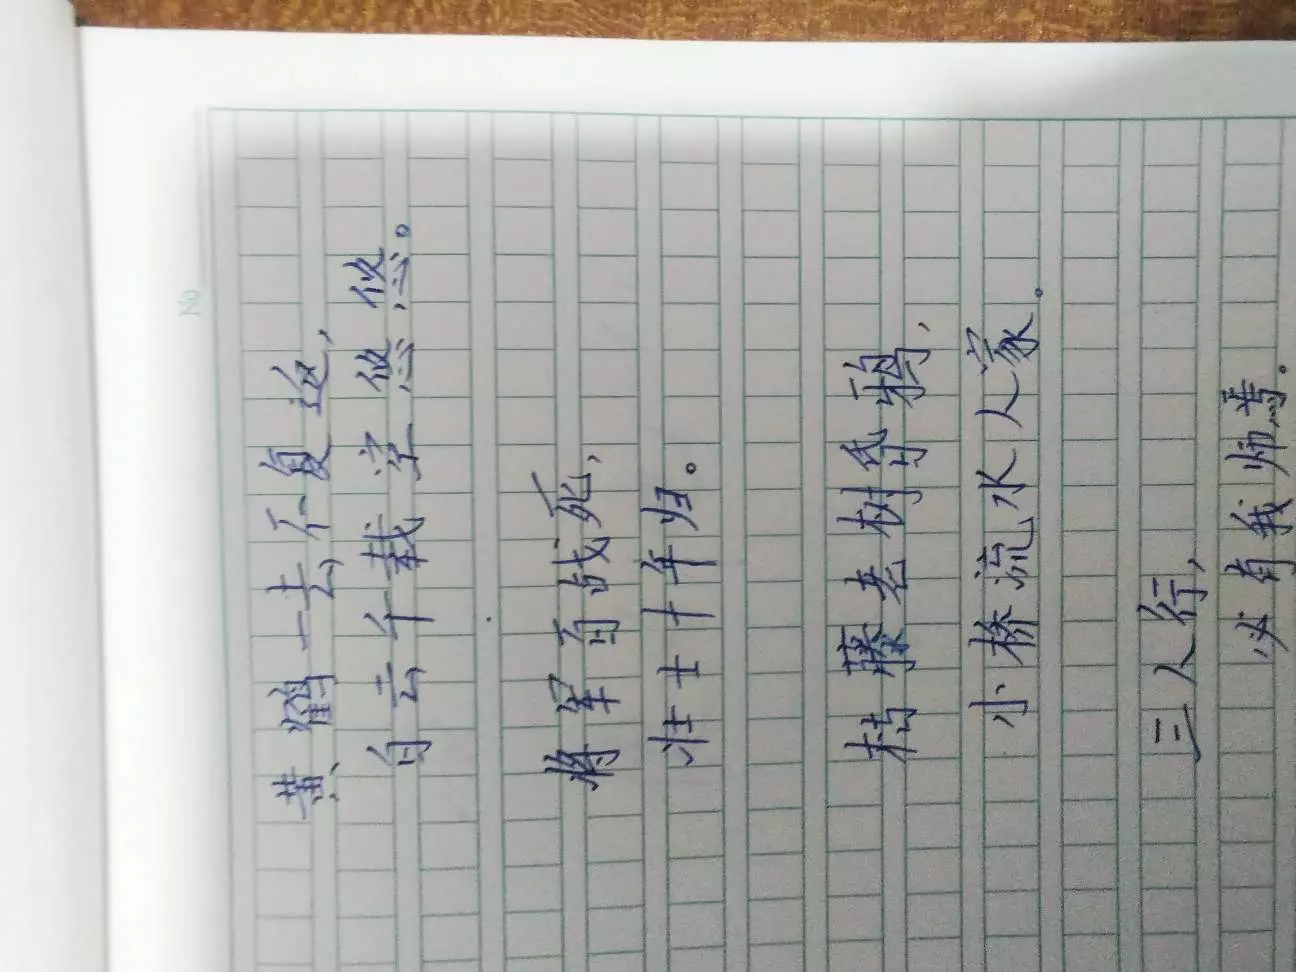 No
黄鹤一去不复返，
白云千载空悠悠。
将军百战死，
壮士十年归。
枯藤老树昏鸦，
小桥流水人家。
三人行，
必有我师焉。